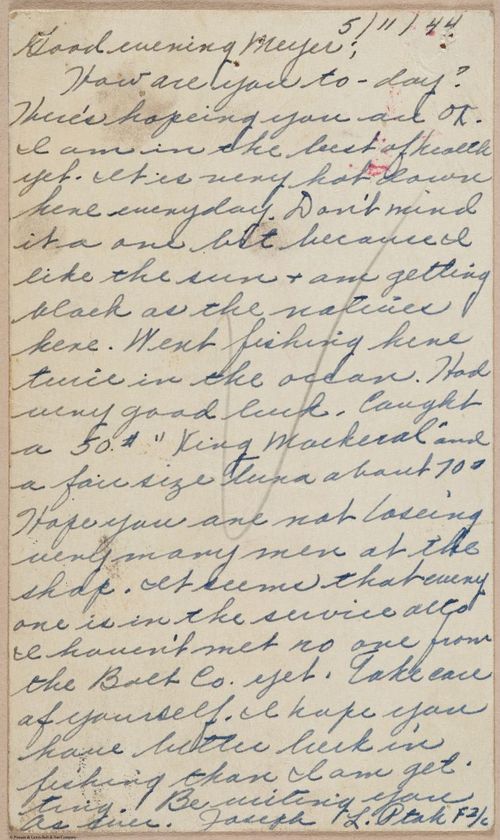 5/11/44
Good evening Meyer;
How are you to-day?
Here's hopeing you are OK.
I am in the best of health
yet. It is very hot down
here everyday. Don't mind
it a one bit because I
like the sun + am getting
black as the natives
here. Went fishing here
twice in the ocean. Had
very good luck. Caught
a 50# "King Mackeral" and
a fair size tuna about 70#
Hope you are not loseing
very many men at the
shop. It seems that every
one is in the service alto
I haven't met no one from
the Bolt Co. yet. Take care
of yourself. I hope you
have better luck in
fishing than I am get-
ting. Be writing you
as ever. Joseph L. Ptak F2/c